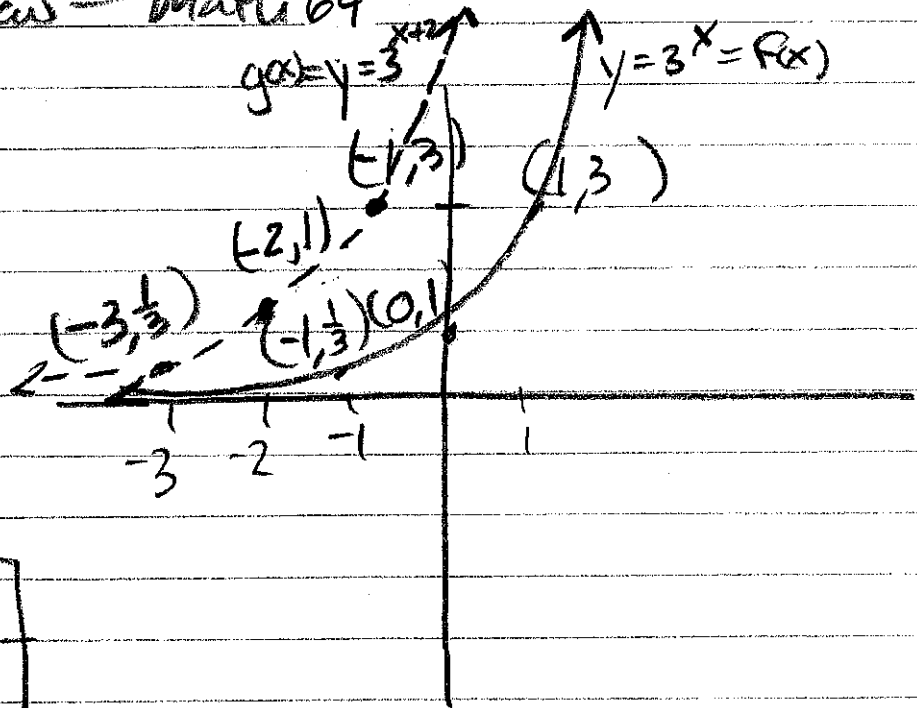 Math 64
g(x)=y=3^{x+2}
y=3^x=f(x)
(-1,3)
(1,3)
(-2,1)
(-3,1/3)
(-1,1/3)
(0,1
-3 -2 -1 1